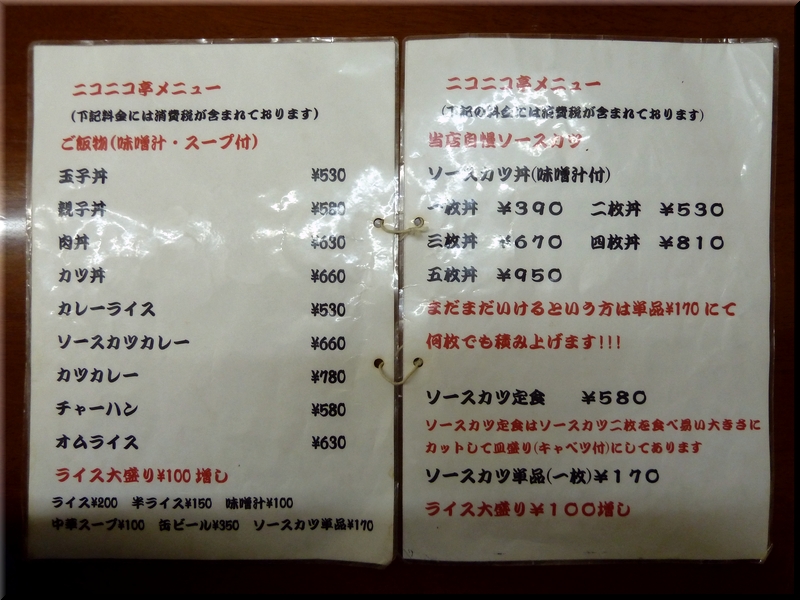 ニコニコ亭メニュー
(下記料金には消費税が含まれております)
ご飯物(味噌汁・スープ付)
玉子丼 ¥530
親子丼 ¥580
肉丼 ¥630
カツ丼 ¥660
カレーライス ¥530
ソースカツカレー ¥660
カツカレー ¥780
チャーハン ¥580
オムライス ¥630
ライス大盛り¥100増し
ライス¥200 半ライス¥150 味噌汁¥100
中華スープ¥100 缶ビール¥350 ソースカツ単品¥170
ニコニコ亭メニュー
(下記の料金には消費税が含まれております)
当店自慢ソースカツ
ソースカツ丼(味噌汁付)
一枚丼 ¥390 二枚丼 ¥530
三枚丼 ¥670 四枚丼 ¥810
五枚丼 ¥950
まだまだいけるという方は単品¥170にて
何枚でも積み上げます!!!
ソースカツ定食 ¥580
ソースカツ定食はソースカツ二枚を食べ易い大きさに
カットして皿盛り(キャベツ付)にしてあります
ソースカツ単品(一枚)¥170
ライス大盛り¥100増し